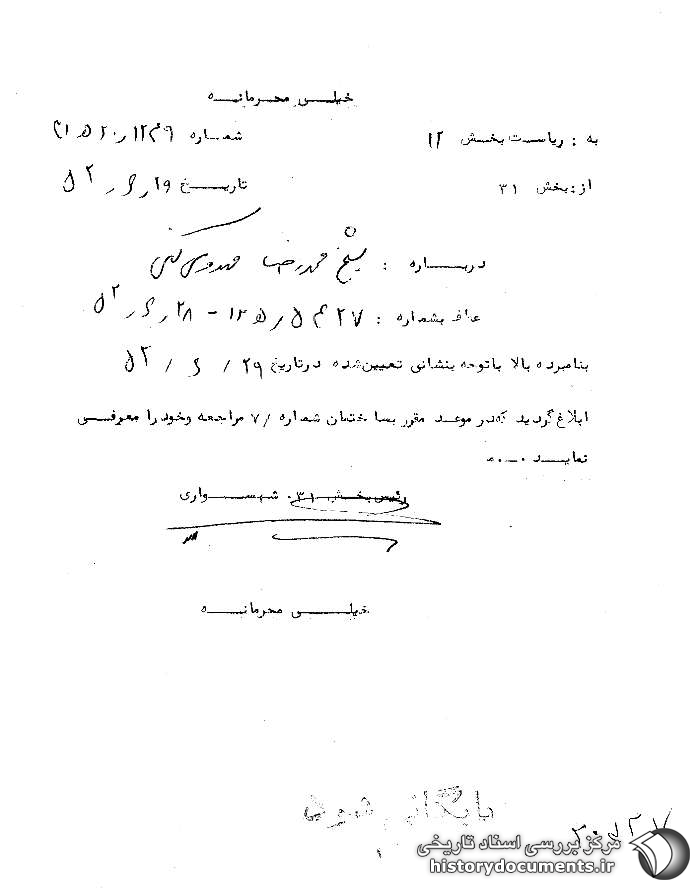 خیلی محرمانه
به : ریاست بخش ۱۲ شماره
از : بخش ۳۱ تاریخ ۲۹ر۶ر۵۲
درباره : شیخ محمدرضا مهدوی کنی
عطف بشماره : ۱۲ه۵ - ۲۸ر۶ر۵۲
بنامبرده بالا باتوجه بنشانی تعیین‌شده درتاریخ ۲۹ / ۶ / ۵۲
ابلاغ گردید که‌در موعد مقرر بساختمان شماره /۷ مراجعه وخودرا معرفی
نماید
رئیس بخش ۳۱ . شهسواری
خیلی محرمانه
بایگانی شود
مرکز بررسی اسناد تاریخی
historydocuments.ir